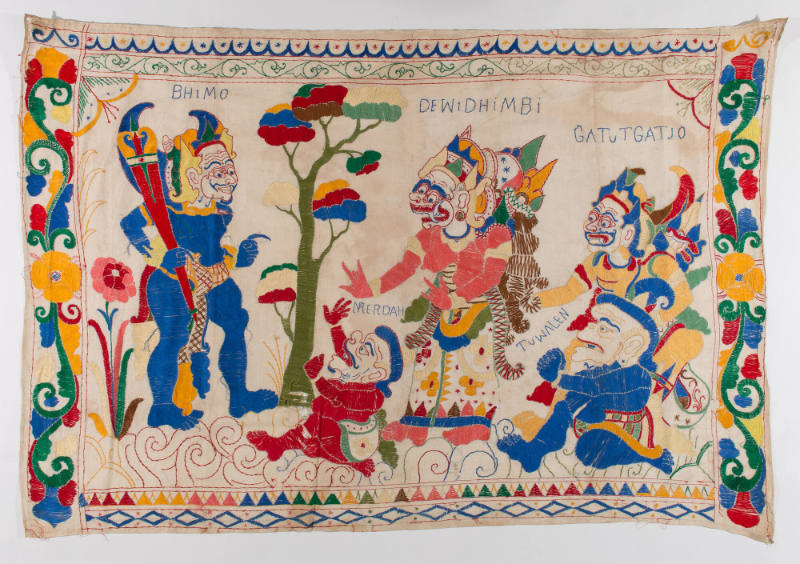 BHIMO
DEWIDHIMBI
GATUTGATJO
MERDAH
TUWALEN